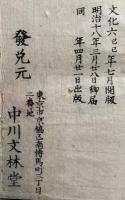 文化六己巳年七月開版
明治十八年三月廿八日御届
同年四月廿一日出版
東京市京橋区南傳馬町二丁目
二番地
發兌元
中川文林堂